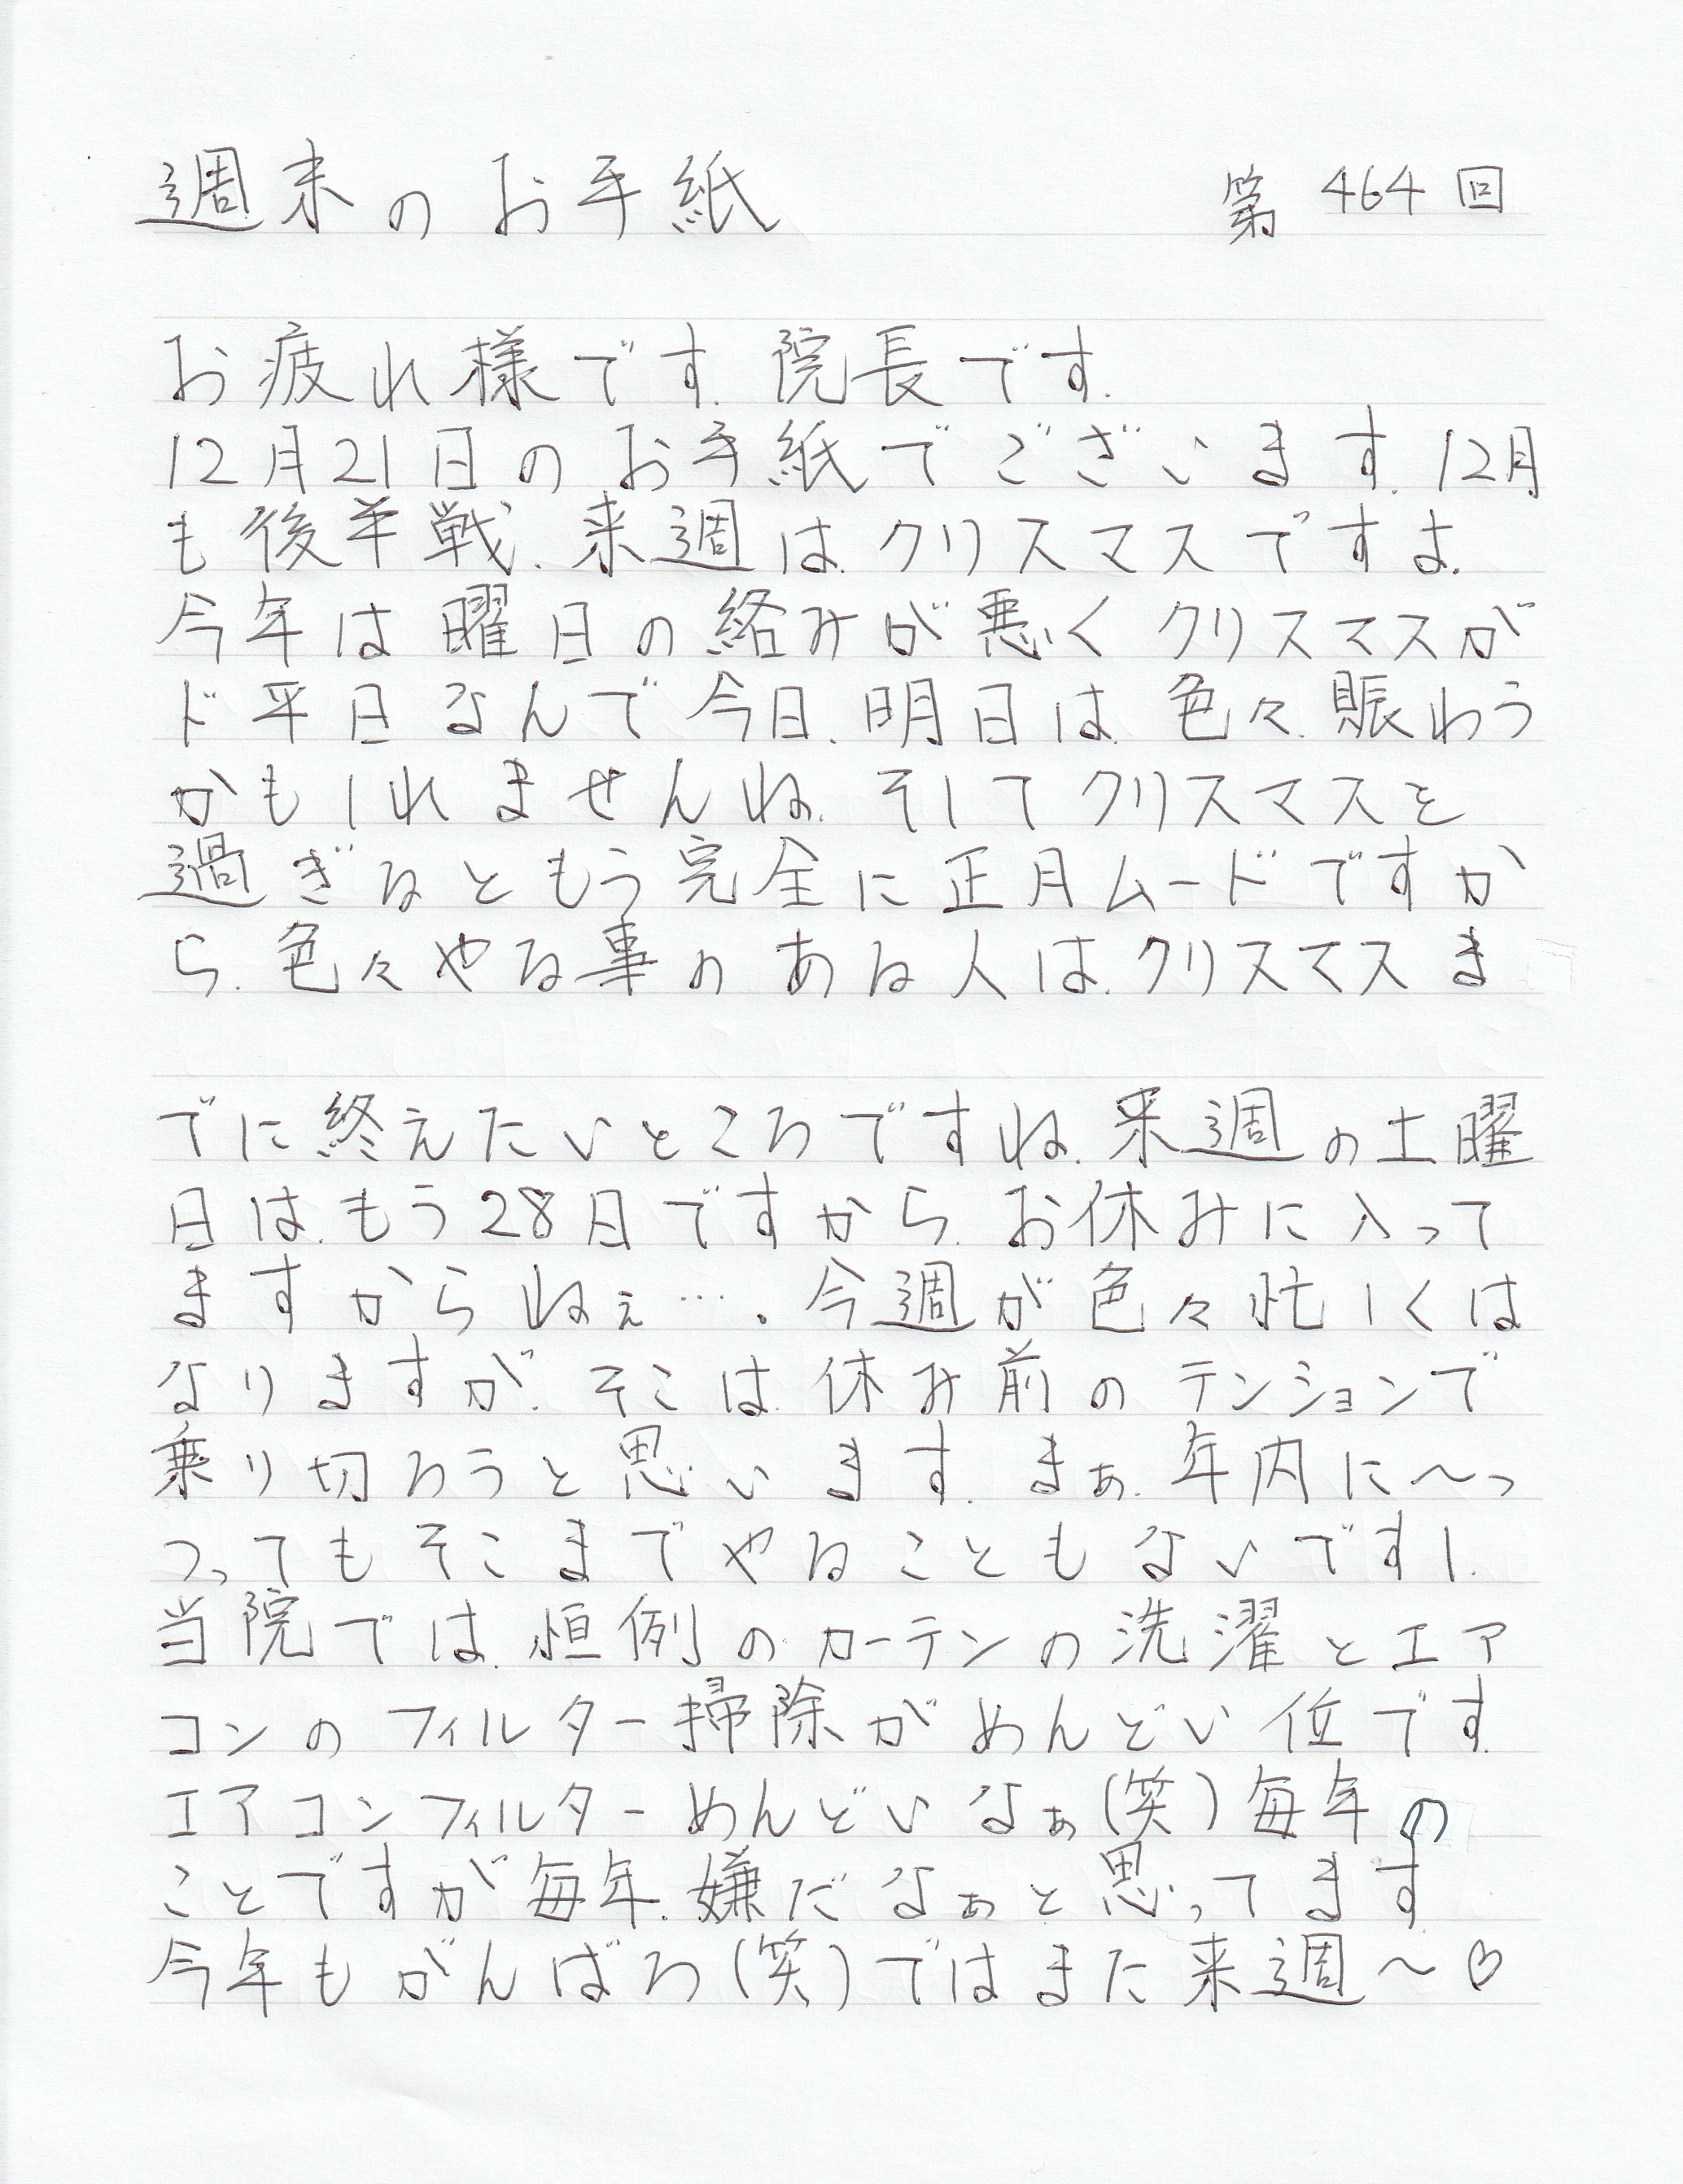 週末のお手紙 第464回
お疲れ様です.院長です.
12月21日のお手紙でございます.12月
も後半戦.来週は.クリスマスですよ.
今年は曜日の絡みが悪くクリスマスが
ド平日なんで今日.明日は.色々.賑わう
かもしれませんね.そしてクリスマスを
過ぎるともう完全に正月ムードですか
ら.色々やる事のある人は.クリスマスま
でに終えたいところですね.来週の土曜
日は.もう28日ですから.お休みに入って
ますからねぇ….今週が色々忙しくは
なりますが.そこは.休み前のテンションで
乗り切ろうと思います.まぁ.年内に〜っ
つってもそこまでやることもないですし.
当院では.恒例のカーテンの洗濯とエア
コンのフィルター掃除がめんどい位です.
エアコンフィルターめんどいなぁ(笑)毎年の
ことですが毎年.嫌だなぁと思ってます.
今年もがんばろ(笑)ではまた来週〜♡